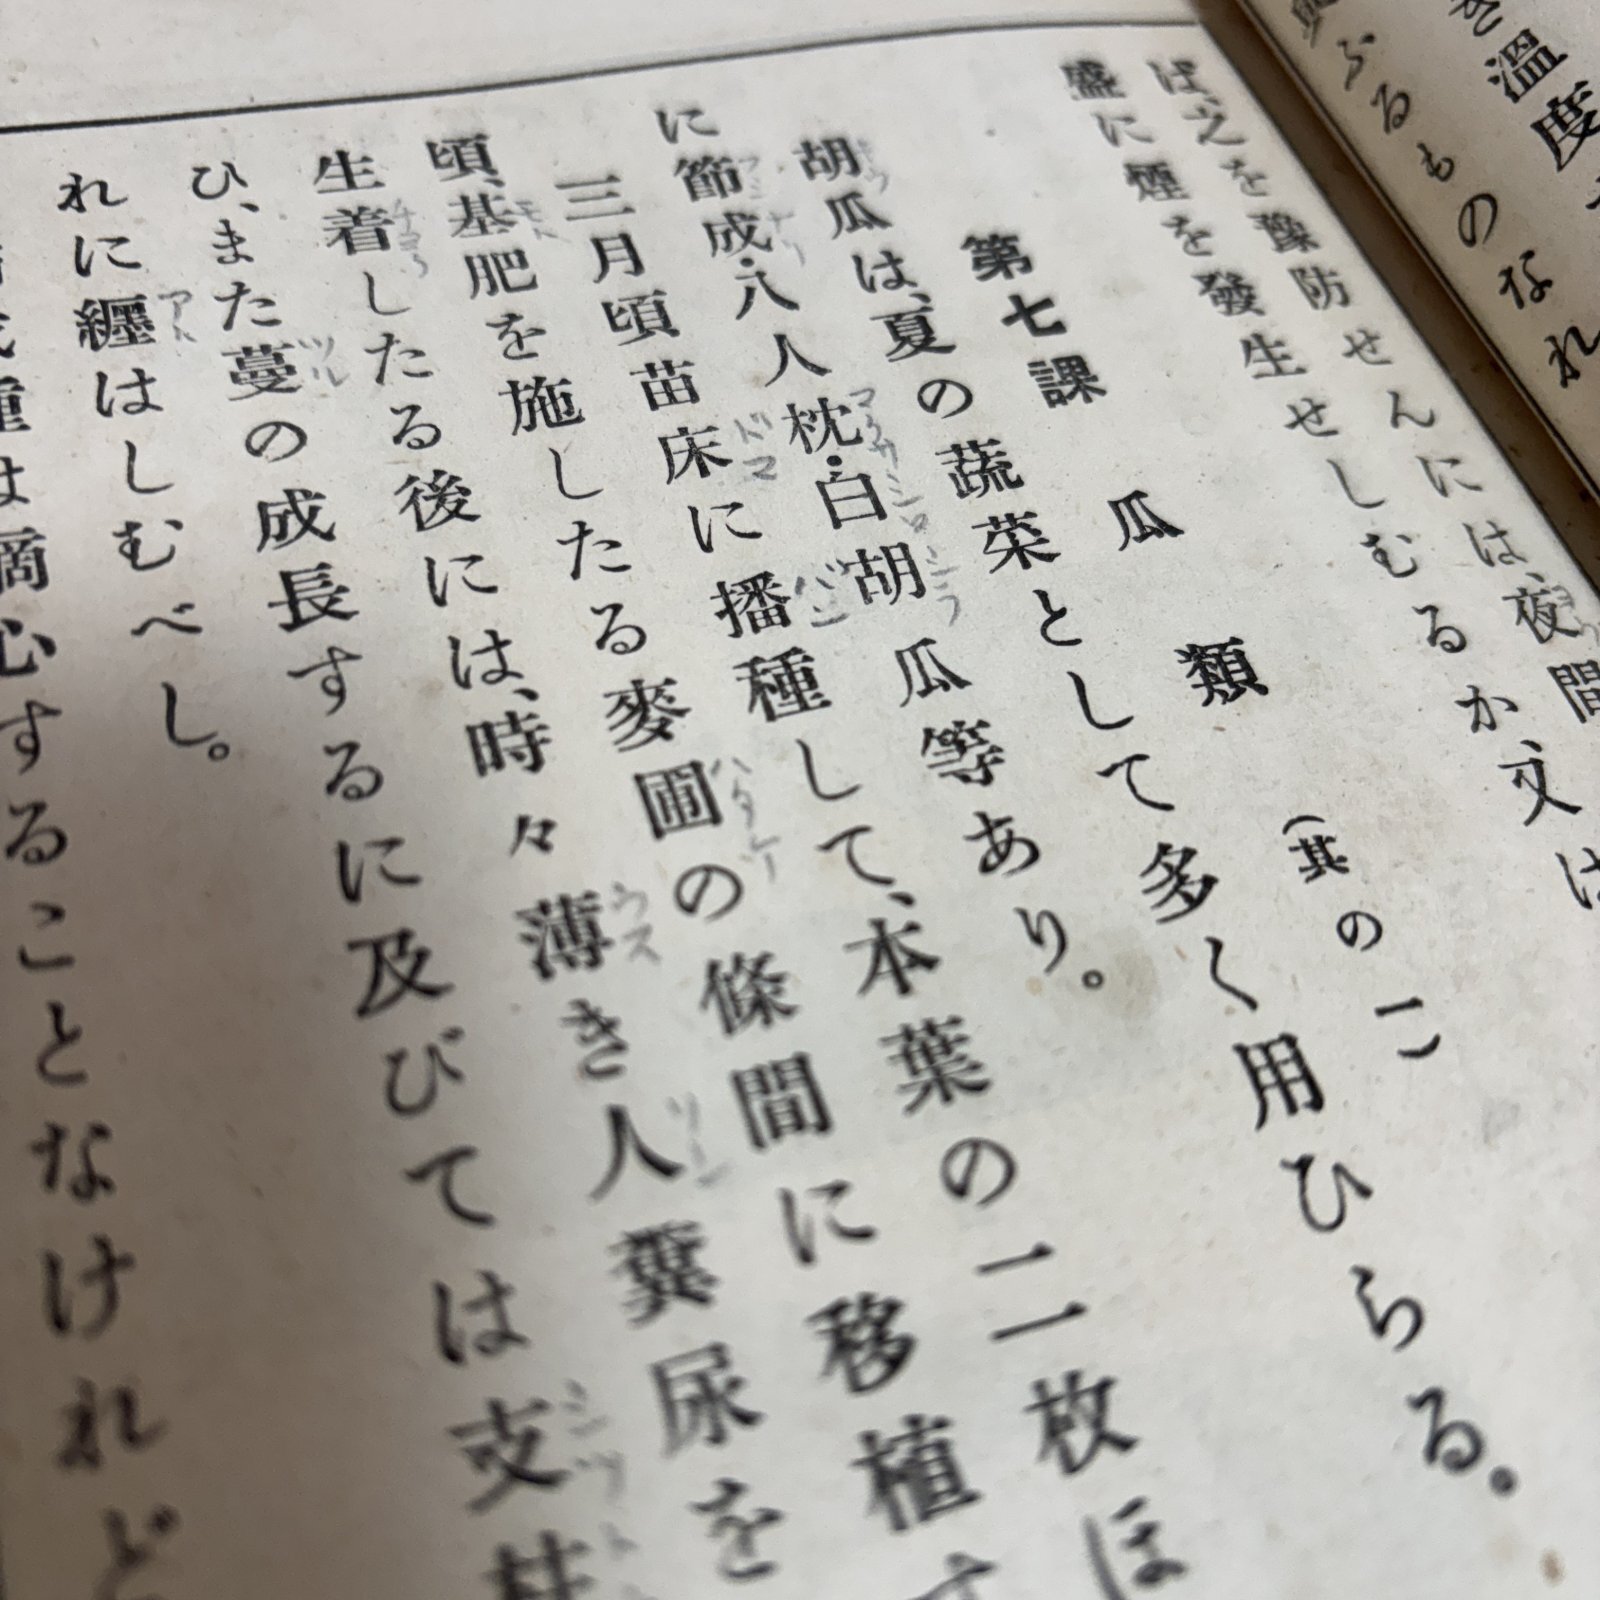 溫度
るものなれ
ば、之を豫防せんには、夜間、又は
盛に煙を發生せしむるか、
第七課 瓜類 (其の二
胡瓜は、夏の蔬菜として多く用ひらる。
に節成・八人枕・白胡瓜等あり。
三月頃苗床に播種して、本葉の二枚ほ
頃、基肥を施したる麥圃の條間に移植す
生着したる後には、時々薄き人糞尿を
ひ、また蔓の成長するに及びては支柱
れに纒はしむべし。
種は摘心することなけれど